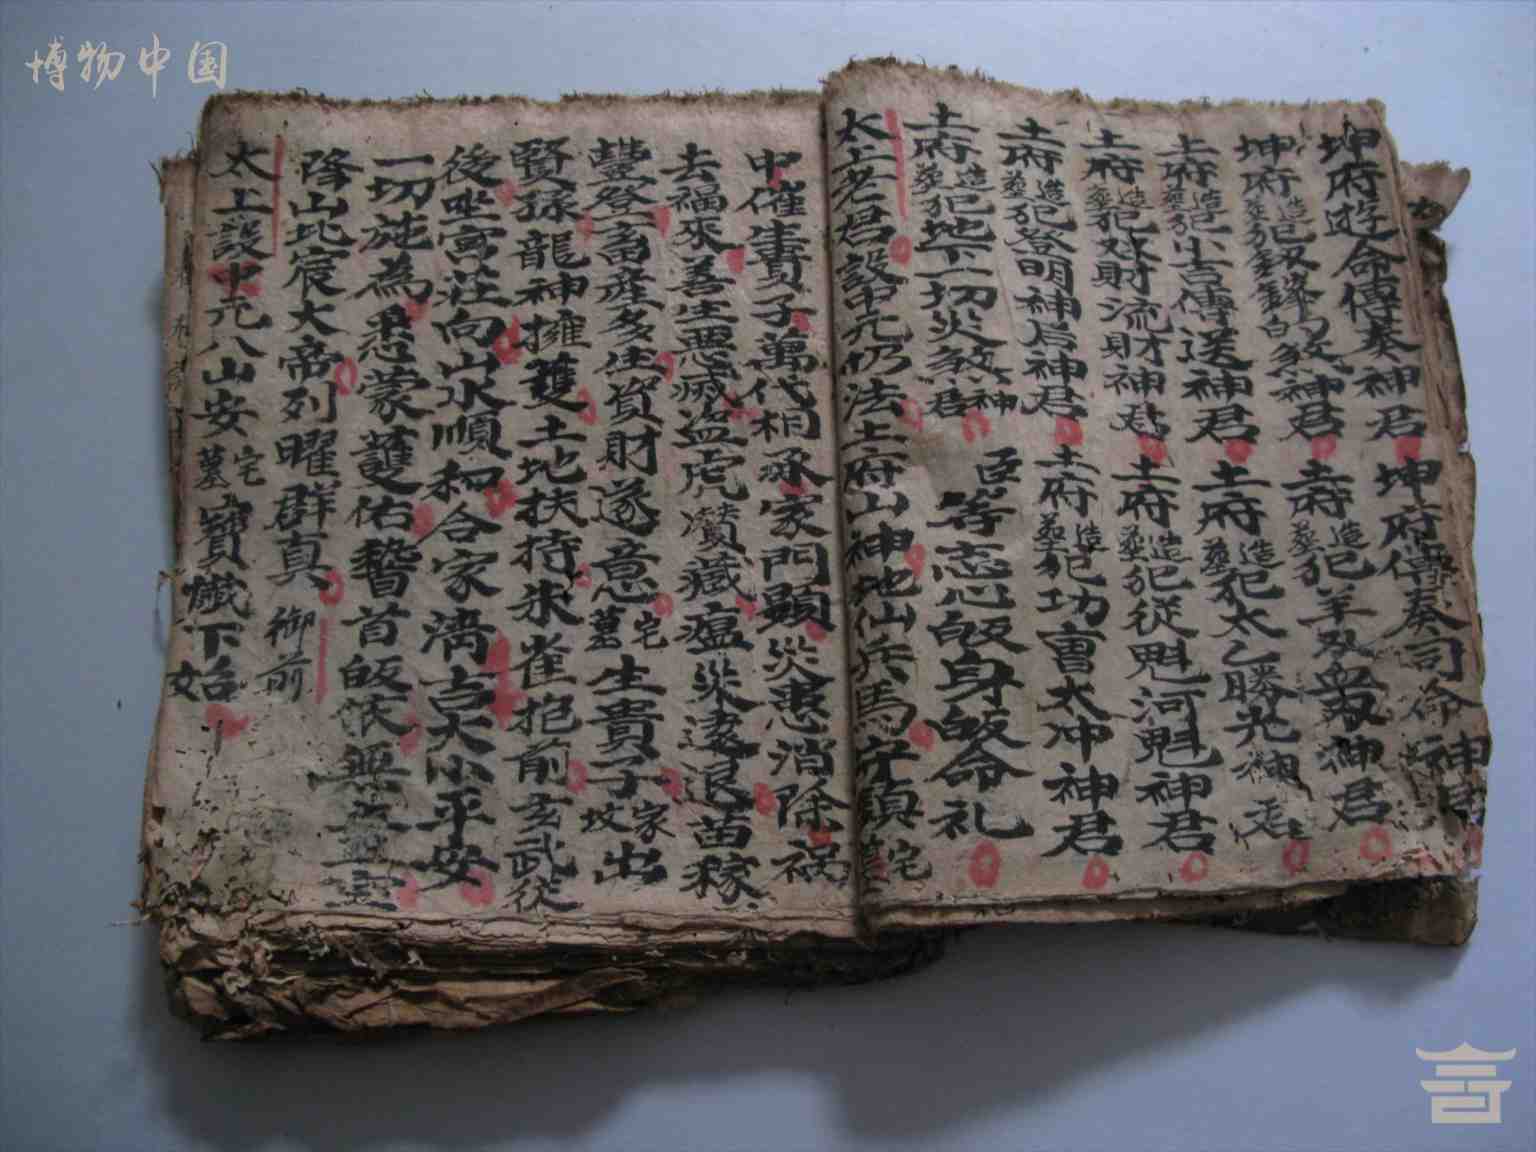 博物中国
坤府遊命傳奏神君 坤府傳奏司命神君
坤府造葬犯 的煞神君 土府造葬犯羊刃血刃神君
土府造葬犯小吉傳送神君 土府造葬犯太乙勝光神君
土府造葬犯 財流財神君 土府造葬犯從魁河魁神君
土府造葬犯登明神后神君 土府造葬犯功曹太冲神君
土府造葬犯地下一切災煞神君 臣等志心皈身皈命礼
太上老君設中元仍法土府山神地仙兵馬守填宅墓
中催書貴子萬代相承家門顯災患消除禍
去福來善生惡滅盜虎 藏瘟災遠退苗稼
豐登畜產多生貨財遂意宅墓生貴子家坟出
賢孫龍神擁護土地扶持朱雀抱前玄武從
後坐宮莊向山水順和合家清吉大小平安
一切施為悉蒙護佑稽首皈依無 
降山北宸大帝列曜群真 御前
太上設中元八山安宅墓寶懺下 始